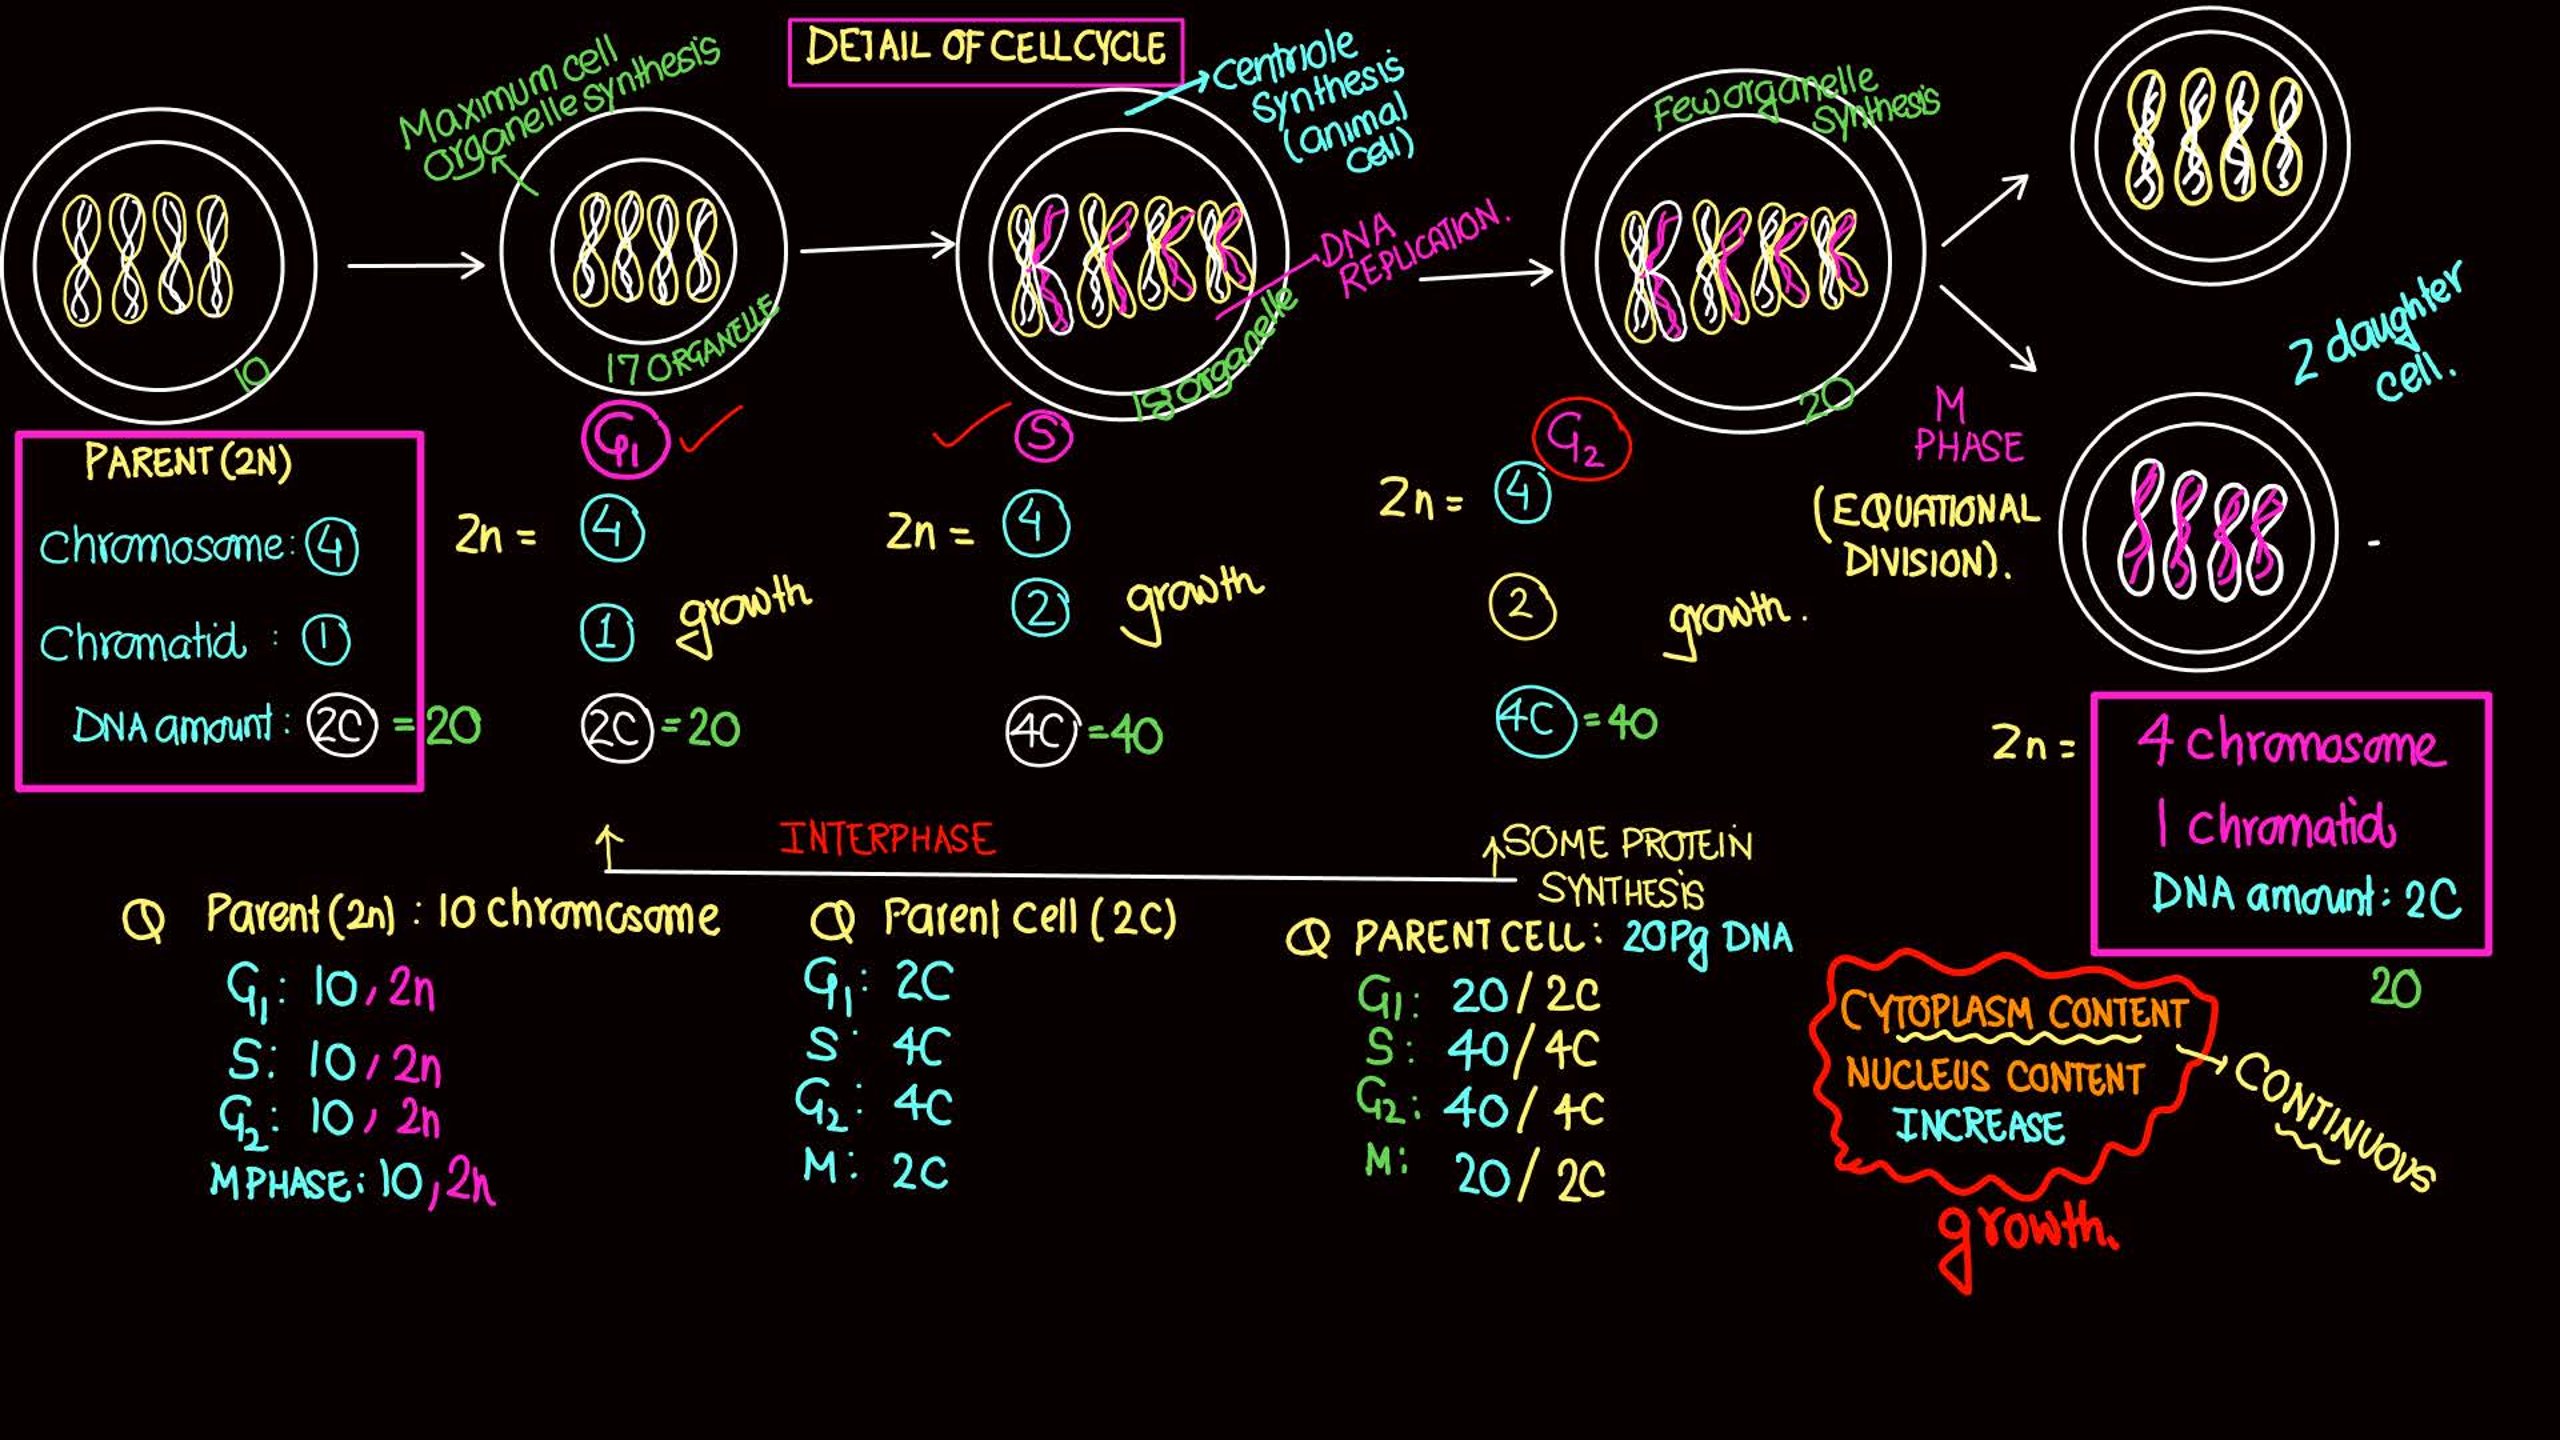 DETAIL OF CELL CYCLE
Maximum cell
organelle synthesis
centriole
synthesis
(animal
cell)
Few organelle
synthesis
DNA
REPLICATION.
10
17 ORGANELLE
18 organelle
20
2 daughter
cell.
M
PHASE
(EQUATIONAL
DIVISION).
PARENT (2N)
Chromosome: 4
Chromatid : 1
DNA amount: 2C = 20
G1
2n = 4
1
growth
2C = 20
S
2n = 4
2
growth
4C = 40
G2
2n = 4
2
growth.
4C = 40
2n =
4 chromosome
1 chromatid
DNA amount: 2C
20
INTERPHASE
SOME PROTEIN
SYNTHESIS
Q Parent (2n) : 10 chromosome
G1: 10, 2n
S: 10, 2n
G2: 10, 2n
M PHASE: 10, 2n
Q Parent cell (2C)
G1: 2C
S: 4C
G2: 4C
M: 2C
Q PARENT CELL: 20Pg DNA
G1: 20 / 2C
S: 40 / 4C
G2: 40 / 4C
M: 20 / 2C
CYTOPLASM CONTENT
NUCLEUS CONTENT
INCREASE
CONTINUOUS
growth.